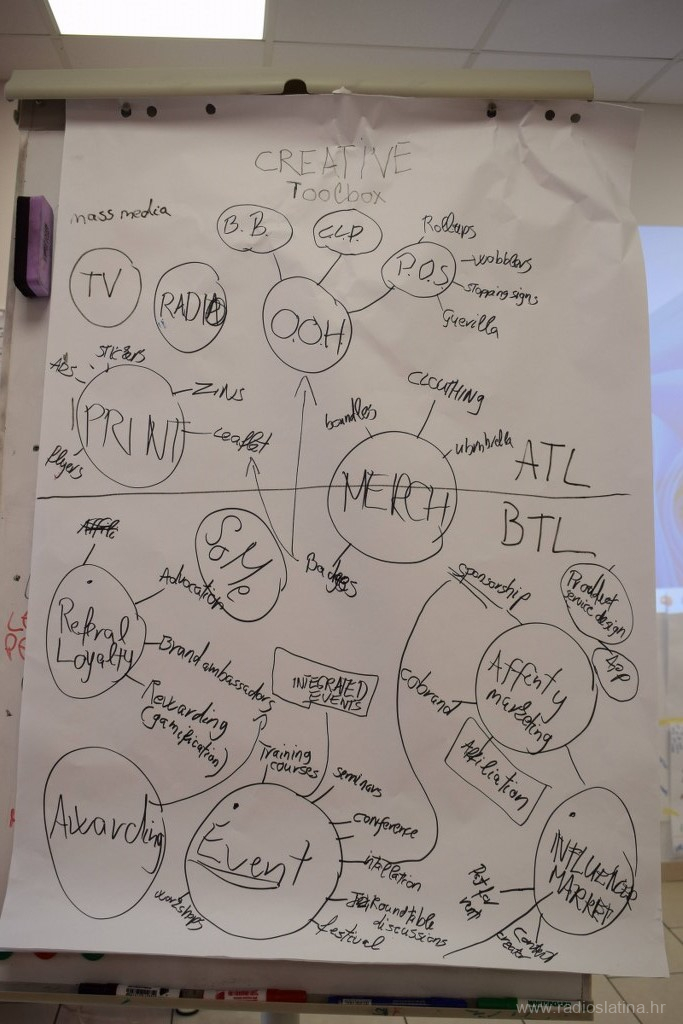 CREATIVE
Toolbox
mass media
B.B.
C.L.P.
P.O.S.
Rollups
wobblers
stopping signs
Guerilla
TV
RADIO
O.O.H.
ADs
STICKERS
PRINT
ZINES
Leaflet
flyers
boundles
CLOUTHING
ubmhrella
MERCH
ATL
BTL
SoMe
Badges
Advocation
Referal
Loyalty
Brand ambassadors
Rewarding
(gamification)
sponsorship
Product
service design
App
Affenty
marketing
cobrand
Affiliation
INTEGRATED
EVENTS
Training
courses
seminars
conference
intallation
Roundtable
discussions
festival
workshops
Event
Awarding
INFLUENCER
MARKET
Content
creator
www.radioslatina.hr